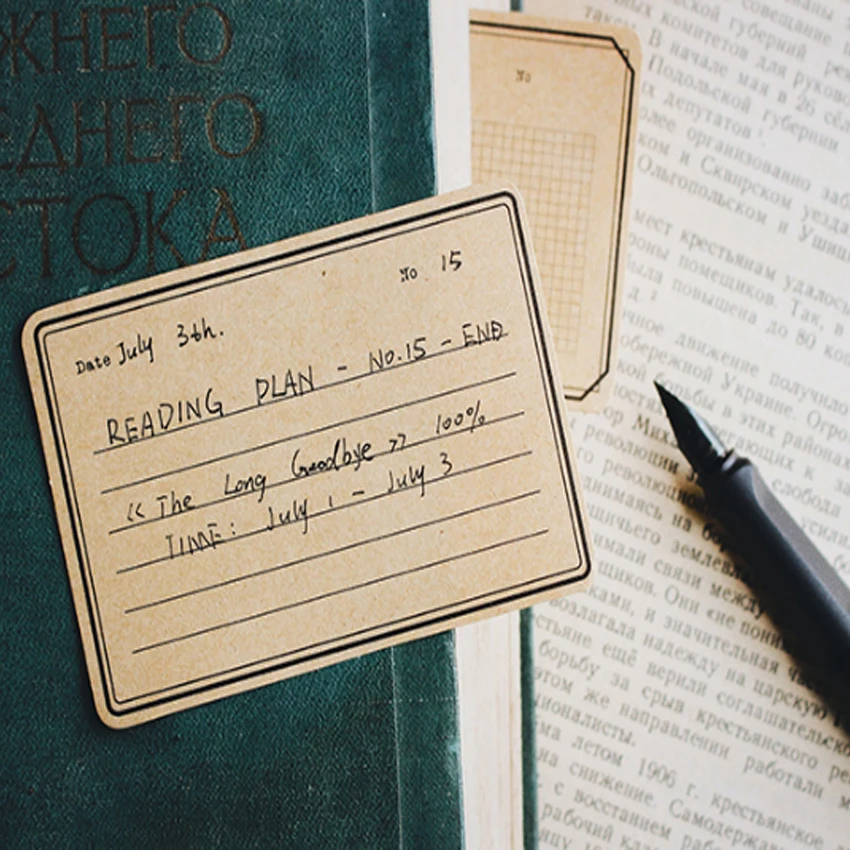 ЖНЕГО
ЕДНЕГО
СТОКА
No
No 15
Date July 3th.
READING PLAN - No.15 - END
<< The Long Goodbye >> 100%
TIME: July 1 - July 3
совещание
ской губернии
ных комитетов для руково
таком. В начале мая в 26 сёл
Подольской губернии
х депутатов
олее организованно заб
ком и Сквирском уезда
Ольгопольском и Ушиц
мест крестьянам удалось
роны помещиков. Так, в
была повышена до 80 коп
чное движение получило
обережной Украине. Огро
кой борьбы в этих районах
революции
слобода
го революцион
днимаясь на бор
щичьего землевла
имали связи между
щиков. Они «не пони
ками, и значительная ча
возлагала надежду на царскую
стьяне ещё верили соглашательско
борьбу за срыв крестьянского ре
том же направлении работали м
ционалисты.
ма летом 1906 г. крестьянское
на снижение. Самодержав
с восстанием рабо
рабочий кла